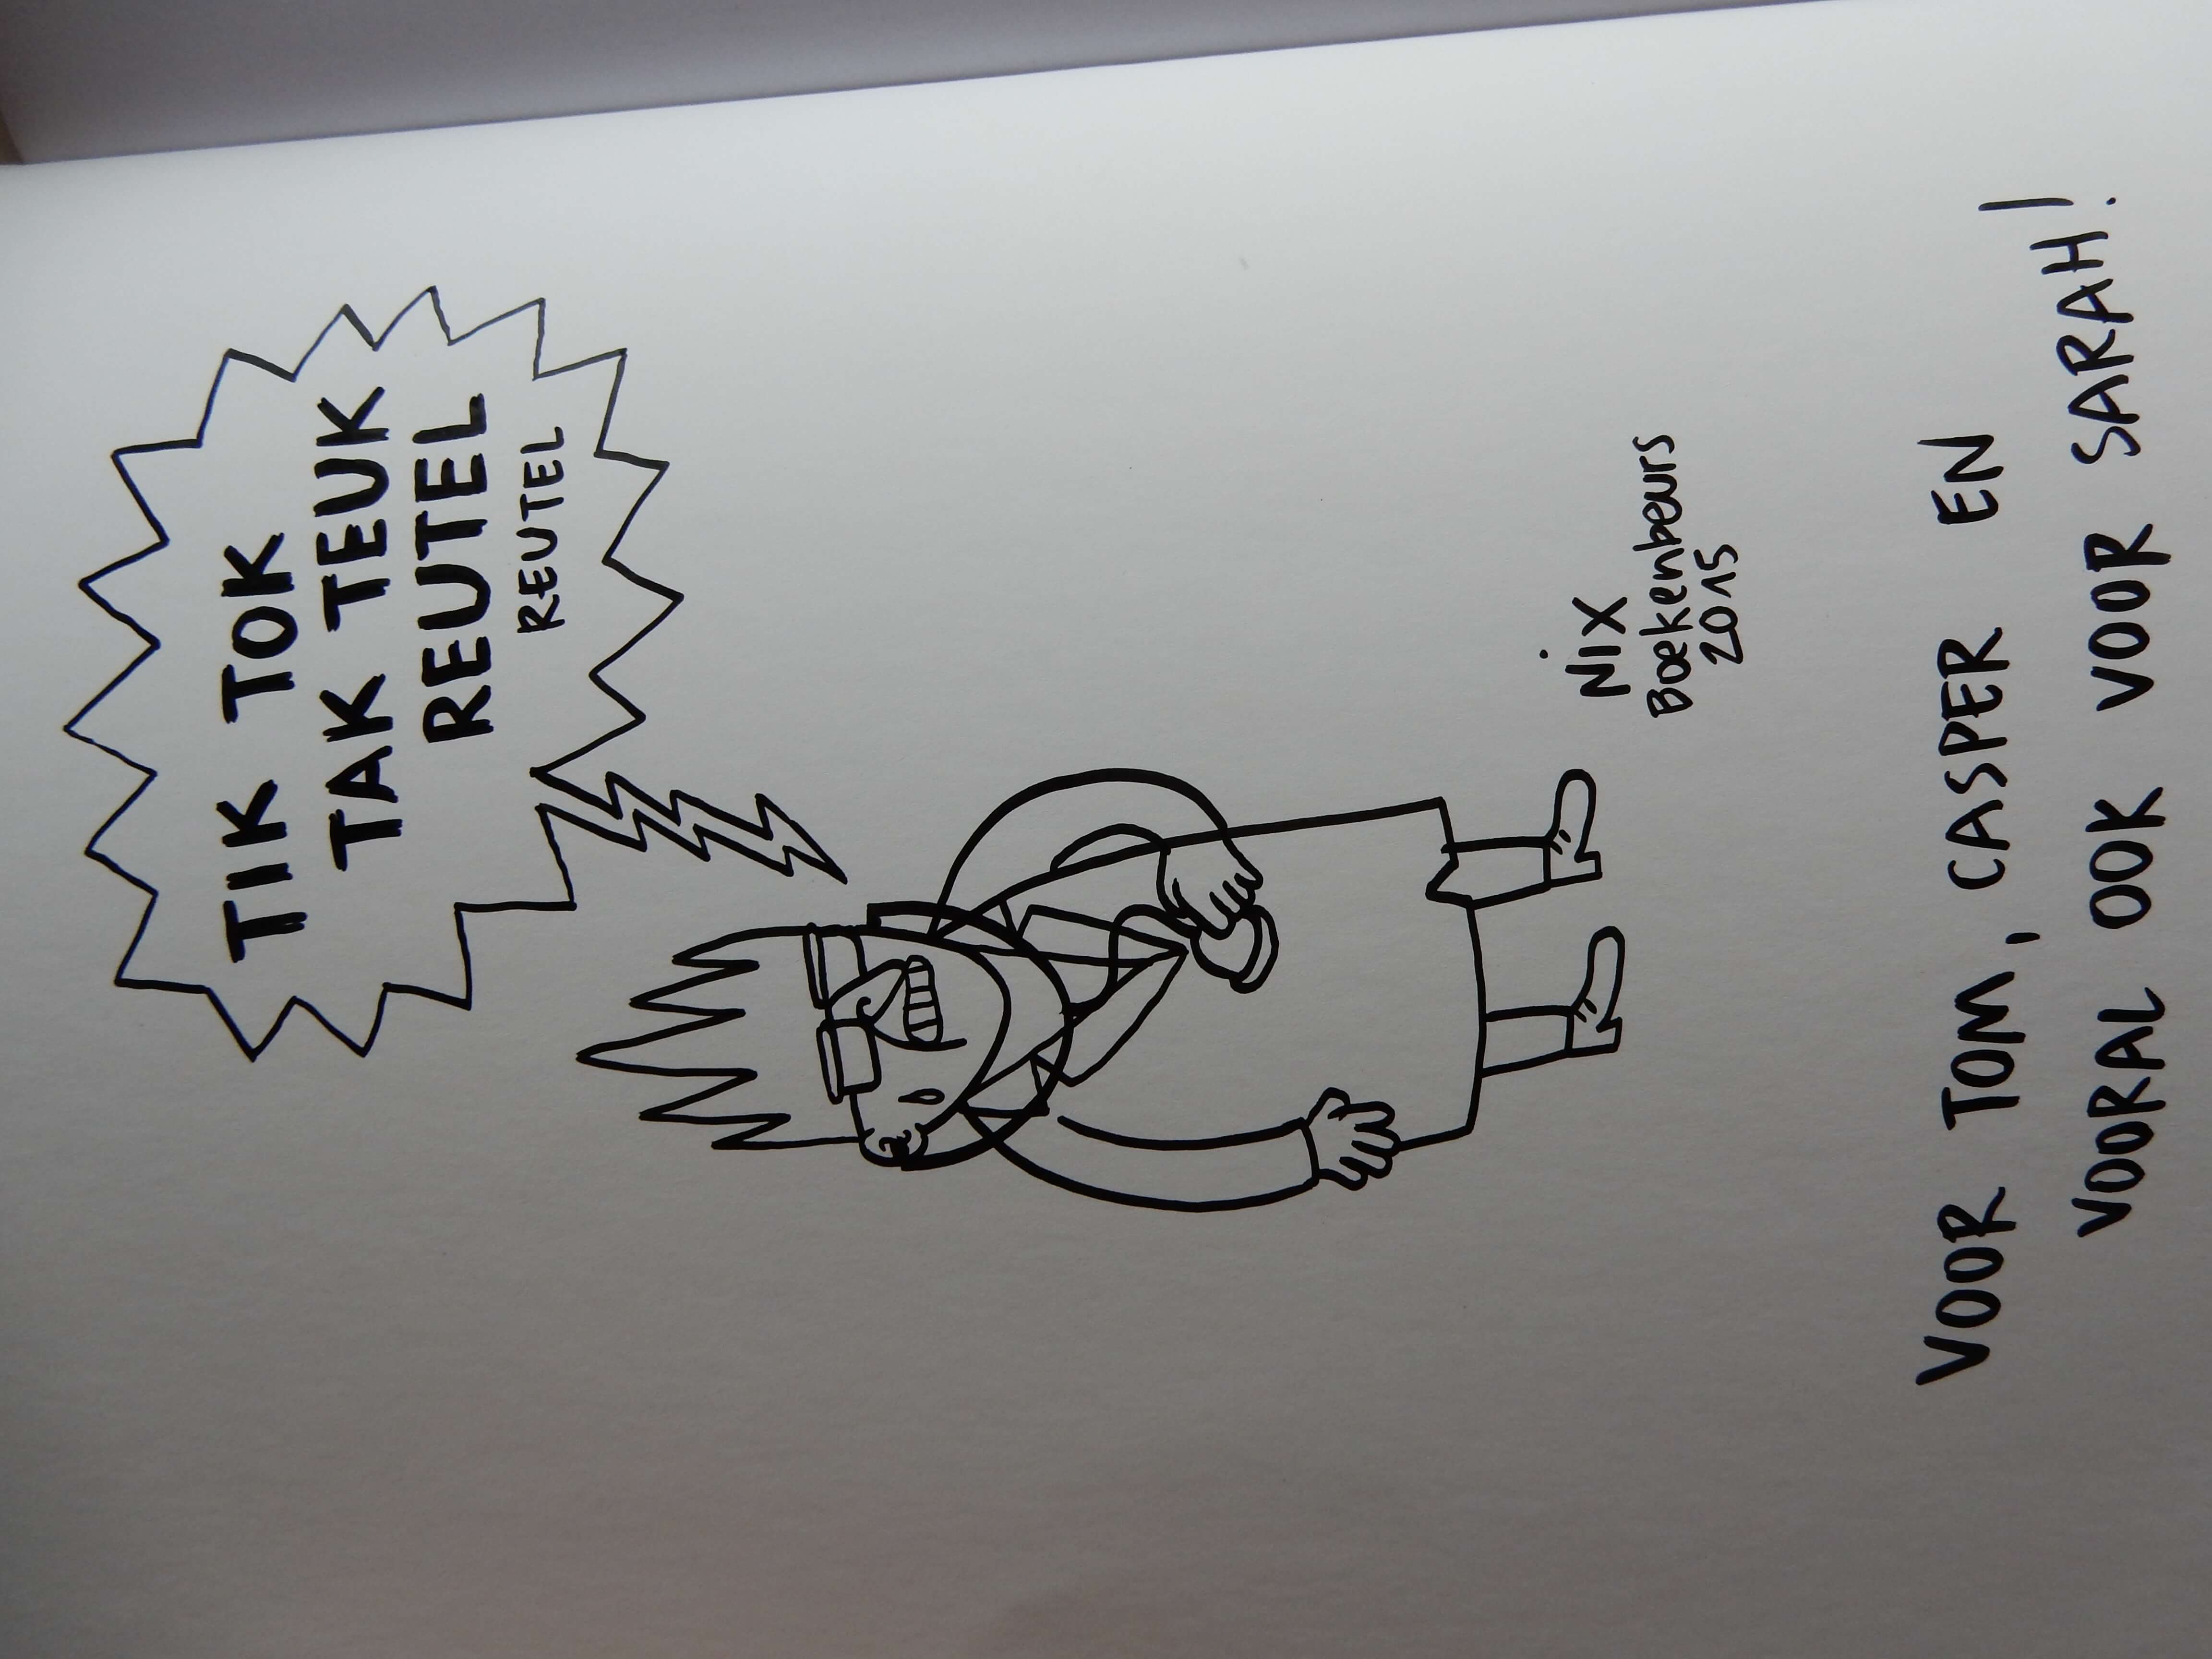 TIK TOK
TAK TEUK
REUTEL
REUTEL
NiX
Boekenbeurs
2015
VOOR TOM, CASPER EN
VOORAL OOK VOOR SARAH!